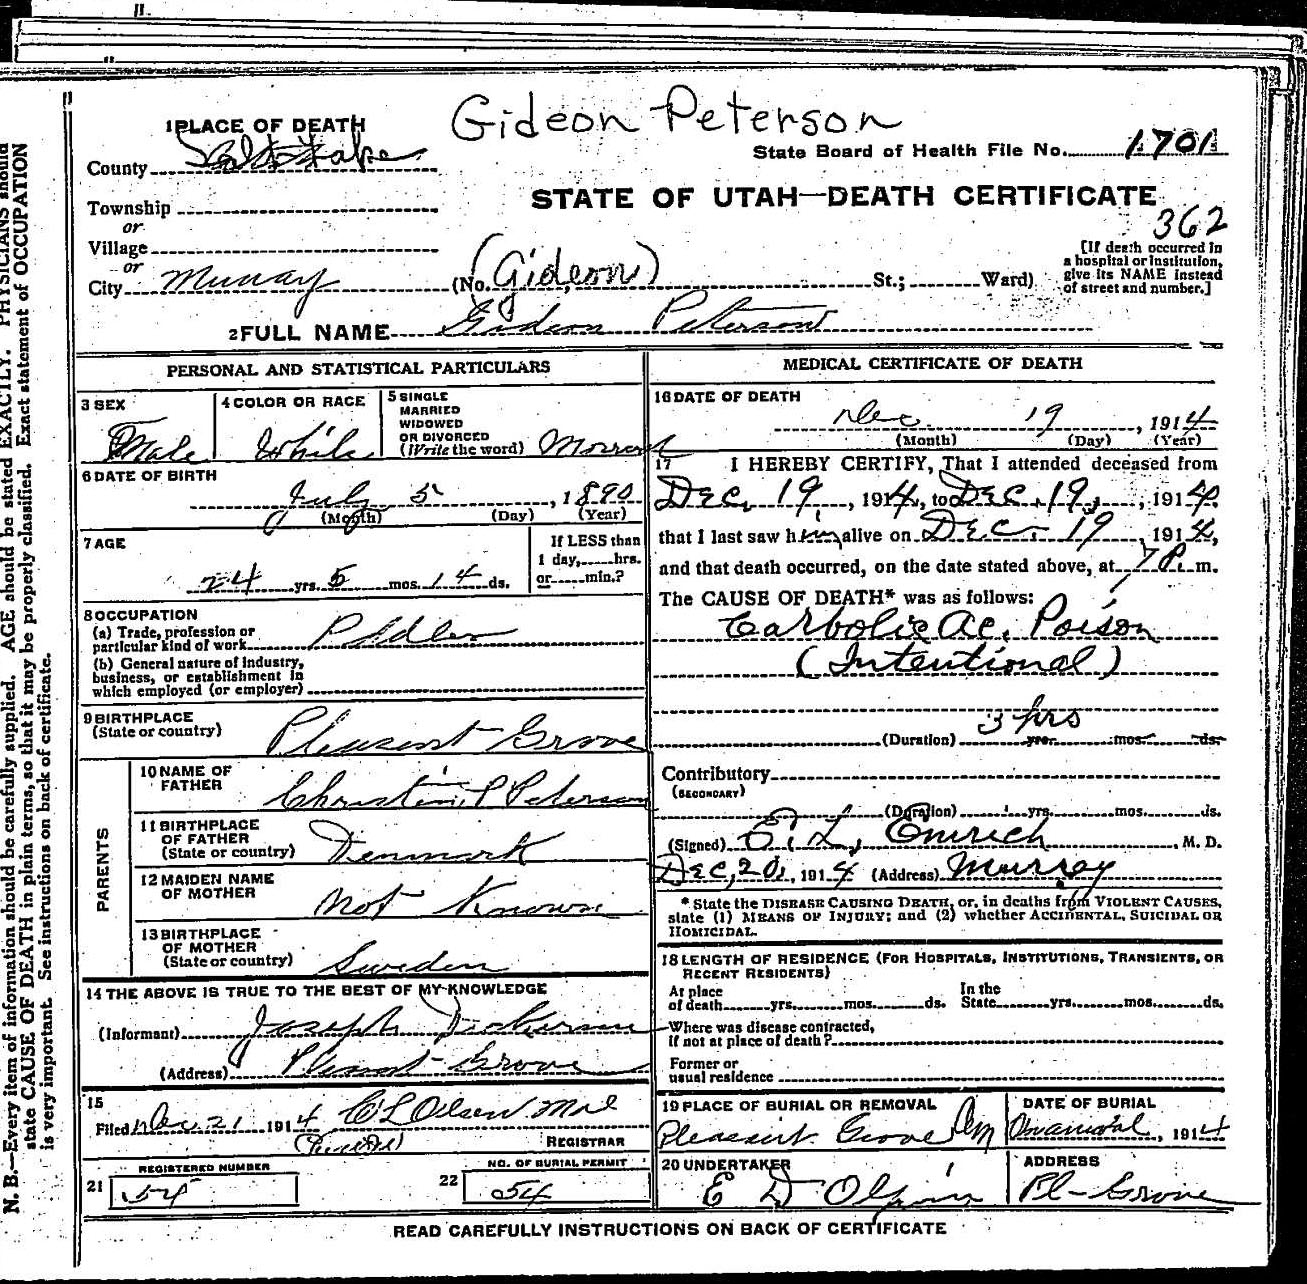 Gideon Peterson
1 PLACE OF DEATH
County Salt Lake
State Board of Health File No. 1701
STATE OF UTAH—DEATH CERTIFICATE
362
Township
or
Village
or
City Murray (No. (Gideon) St.; Ward)
[If death occurred in
a hospital or institution,
give its NAME instead
of street and number.]
2 FULL NAME Gideon Peterson
PERSONAL AND STATISTICAL PARTICULARS
3 SEX
Male
4 COLOR OR RACE
White
5 SINGLE
MARRIED
WIDOWED
OR DIVORCED
(Write the word)
6 DATE OF BIRTH
July 5, 1890
(Month) (Day) (Year)
7 AGE
24 yrs. 5 mos. 14 ds.
If LESS than
1 day, hrs.
or min.?
8 OCCUPATION
(a) Trade, profession or
particular kind of work Pedler
(b) General nature of industry,
business, or establishment in
which employed (or employer)
9 BIRTHPLACE
(State or country) Pleasant Grove
PARENTS
10 NAME OF
FATHER P Peterson
11 BIRTHPLACE
OF FATHER
(State or country) Denmark
12 MAIDEN NAME
OF MOTHER not Known
13 BIRTHPLACE
OF MOTHER
(State or country) Sweden
14 THE ABOVE IS TRUE TO THE BEST OF MY KNOWLEDGE
(Informant) Joseph
(Address) Pleasant Grove
15
Filed Dec. 21 1914 C L Olsen
REGISTRAR
REGISTERED NUMBER
21 54
NO. OF BURIAL PERMIT
22 54
MEDICAL CERTIFICATE OF DEATH
16 DATE OF DEATH
Dec. 19, 1914
(Month) (Day) (Year)
17 I HEREBY CERTIFY, That I attended deceased from
Dec. 19, 1914, to Dec. 19, 1914,
that I last saw him alive on Dec. 19, 1914,
and that death occurred, on the date stated above, at 7 P. m.
The CAUSE OF DEATH* was as follows:
Carbolic Ac. Poison
(Intentional)
3 hrs
(Duration) yrs. mos. ds.
Contributory
(SECONDARY)
(Duration) yrs. mos. ds.
(Signed) E. L. Emrich, M. D.
Dec, 20, 1914 (Address) Murray
* State the DISEASE CAUSING DEATH, or, in deaths from VIOLENT CAUSES,
state (1) MEANS OF INJURY; and (2) whether ACCIDENTAL, SUICIDAL OR
HOMICIDAL.
18 LENGTH OF RESIDENCE (FOR HOSPITALS, INSTITUTIONS, TRANSIENTS, OR
RECENT RESIDENTS)
At place
of death yrs. mos. ds.
In the
State yrs. mos. ds.
Where was disease contracted,
if not at place of death?
Former or
usual residence
19 PLACE OF BURIAL OR REMOVAL
Pleasant Grove
DATE OF BURIAL
, 1914
20 UNDERTAKER
E D Olpin
ADDRESS
Pl-Grove
READ CAREFULLY INSTRUCTIONS ON BACK OF CERTIFICATE
N. B.—Every item of information should be carefully supplied. AGE should be stated EXACTLY. PHYSICIANS should
state CAUSE OF DEATH in plain terms, so that it may be properly classified. Exact statement of OCCUPATION
is very important. See instructions on back of certificate.